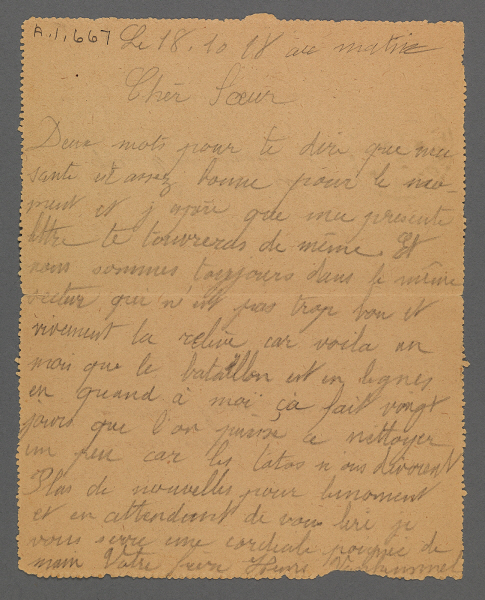 A.1.667 Le 18.10 18 au matin
Cher Sœur
Deux mots pour te dire que ma
santé est assez bonne pour le mo-
ment et j'espère que ma présente
lettre te trouveras de même. Et
nous sommes toujours dans le même
secteur qui n'est pas trop bon et
vivement la relève car voila un
mois que le bataillon est en lignes
en quand à moi ça fait vingt
jours que l'on puisse ce nettoyer
un peu car les totos nous dévorent
Plus de nouvelles pour lemoment
et en attendant de vous lire je
vous serre une cordiale poignée de
main Votre frère Henri